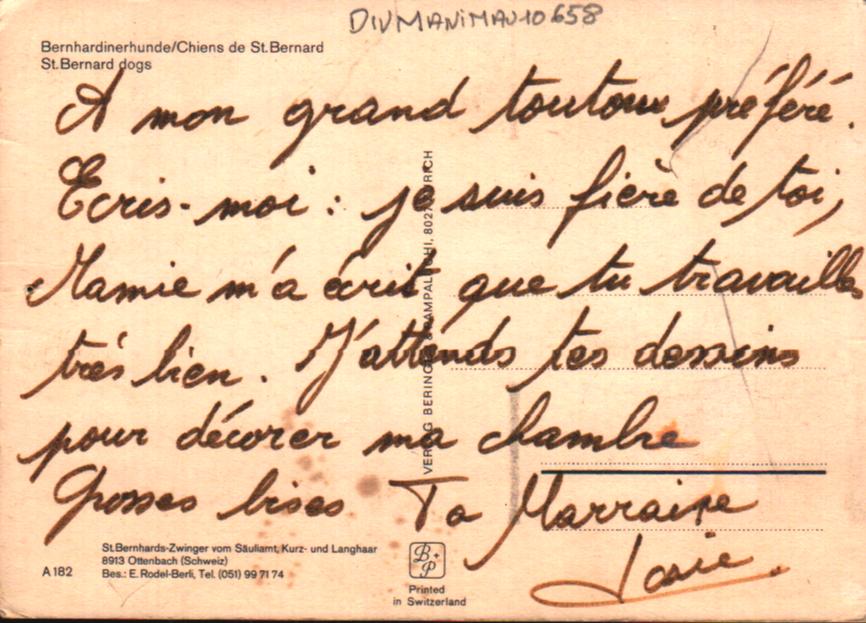 DIVMANIMAU10658
Bernhardinerhunde/Chiens de St.Bernard
St.Bernard dogs
A mon grand toutou préféré.
Ecris-moi : je suis fière de toi,
Mamie m'a écrit que tu travailles
très bien. J'attends tes dessins
pour décorer ma chambre
Grosses bises Ta Marraine
VERLAG BERING
St.Bernhards-Zwinger vom Säuliamt, Kurz- und Langhaar
8913 Ottenbach (Schweiz)
A 182 Bes.: E. Rodel-Berli, Tel. (051) 99 71 74
B+P
Printed
in Switzerland